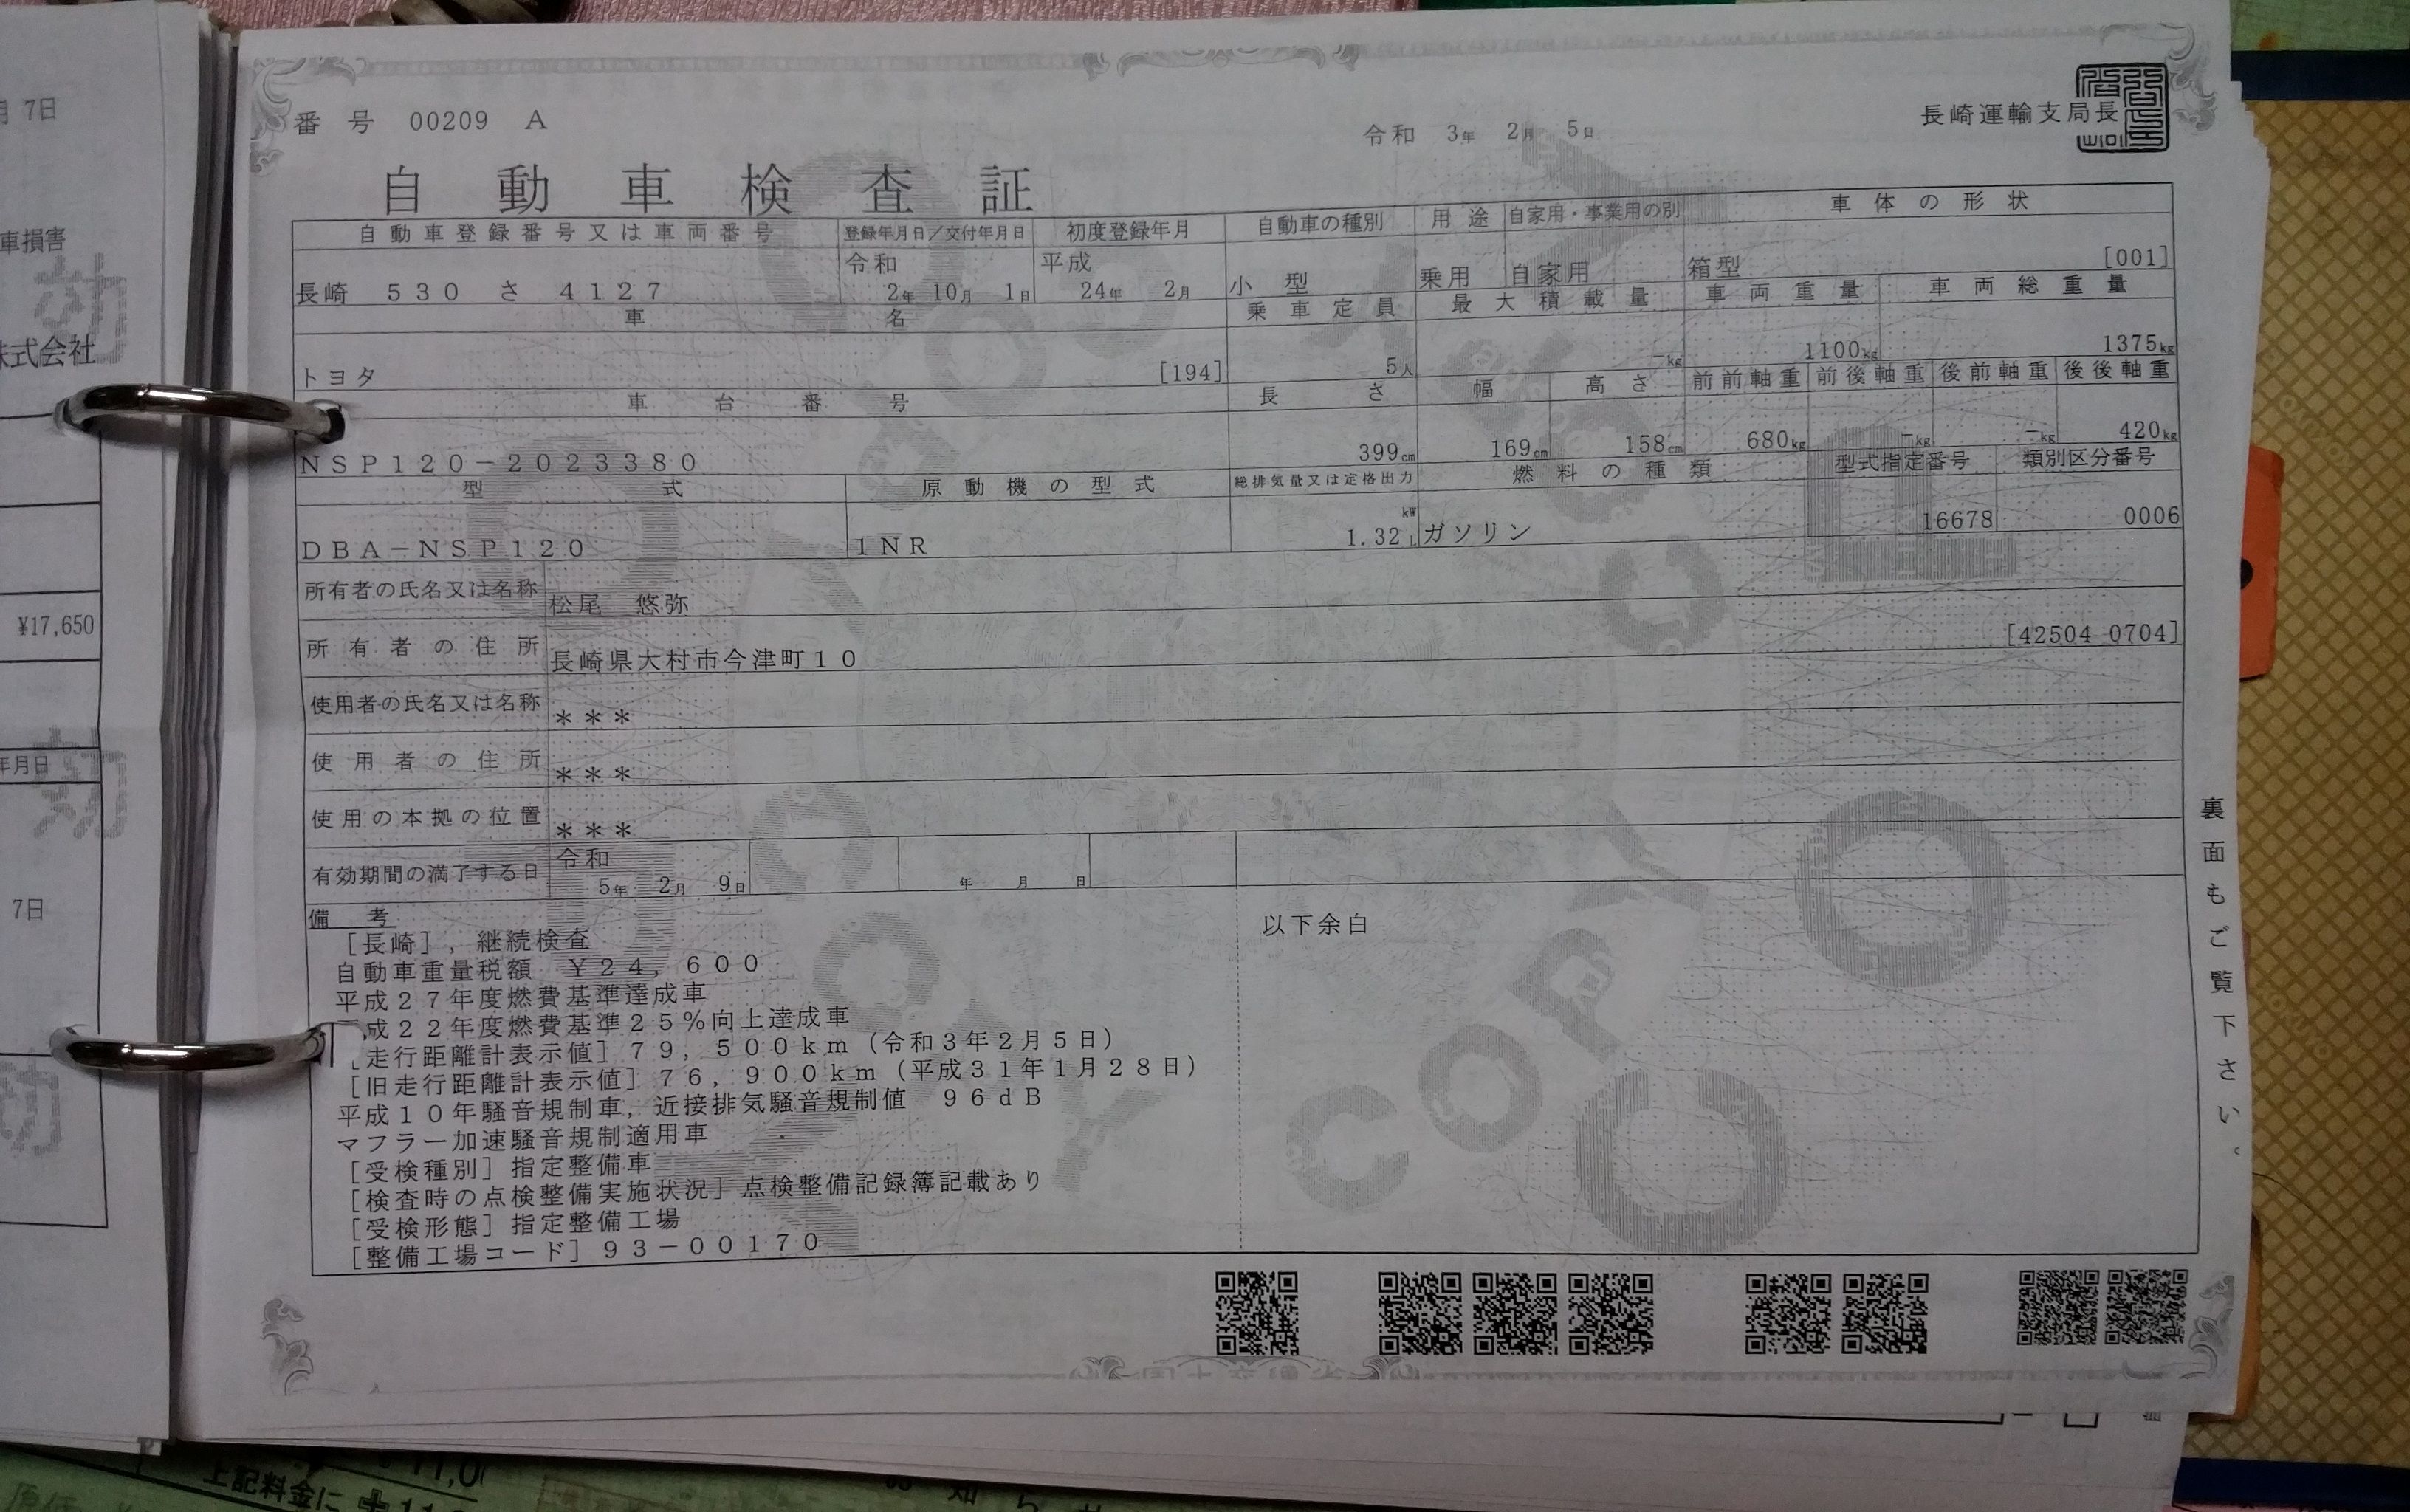 月 7日
車損害
株式会社
¥17,650
年月日
7日
番 号 00209 A
令和 3年 2月 5日
長崎運輸支局長
自動車検査証
自動車登録番号又は車両番号 登録年月日/交付年月日 初度登録年月 自動車の種別 用途 自家用・事業用の別 車体の形状
長崎 530 さ 4127 令和 2年 10月 1日 平成 24年 2月 小型 乗用 自家用 箱型 [001]
車名 乗車定員 最大積載量 車両重量 車両総重量
トヨタ [194] 5人 -kg 1100kg 1375kg
車台番号 長さ 幅 高さ 前前軸重 前後軸重 後前軸重 後後軸重
NSP120-2023380 399cm 169cm 158cm 680kg -kg -kg 420kg
型式 原動機の型式 総排気量又は定格出力 燃料の種類 型式指定番号 類別区分番号
DBA-NSP120 1NR 1.32 kW L ガソリン 16678 0006
所有者の氏名又は名称 松尾 悠弥
所有者の住所 長崎県大村市今津町10 [42504 0704]
使用者の氏名又は名称 ***
使用者の住所 ***
使用の本拠の位置 ***
有効期間の満了する日 令和 5年 2月 9日 年 月 日
備考
[長崎],継続検査
自動車重量税額 ¥24,600
平成27年度燃費基準達成車
成22年度燃費基準25%向上達成車
[走行距離計表示値]79,500km(令和3年2月5日)
[旧走行距離計表示値]76,900km(平成31年1月28日)
平成10年騒音規制車,近接排気騒音規制値 96dB
マフラー加速騒音規制適用車
[受検種別]指定整備車
[検査時の点検整備実施状況]点検整備記録簿記載あり
[受検形態]指定整備工場
[整備工場コード]93-00170
以下余白
裏面もご覧下さい。
COPY
上記料金に